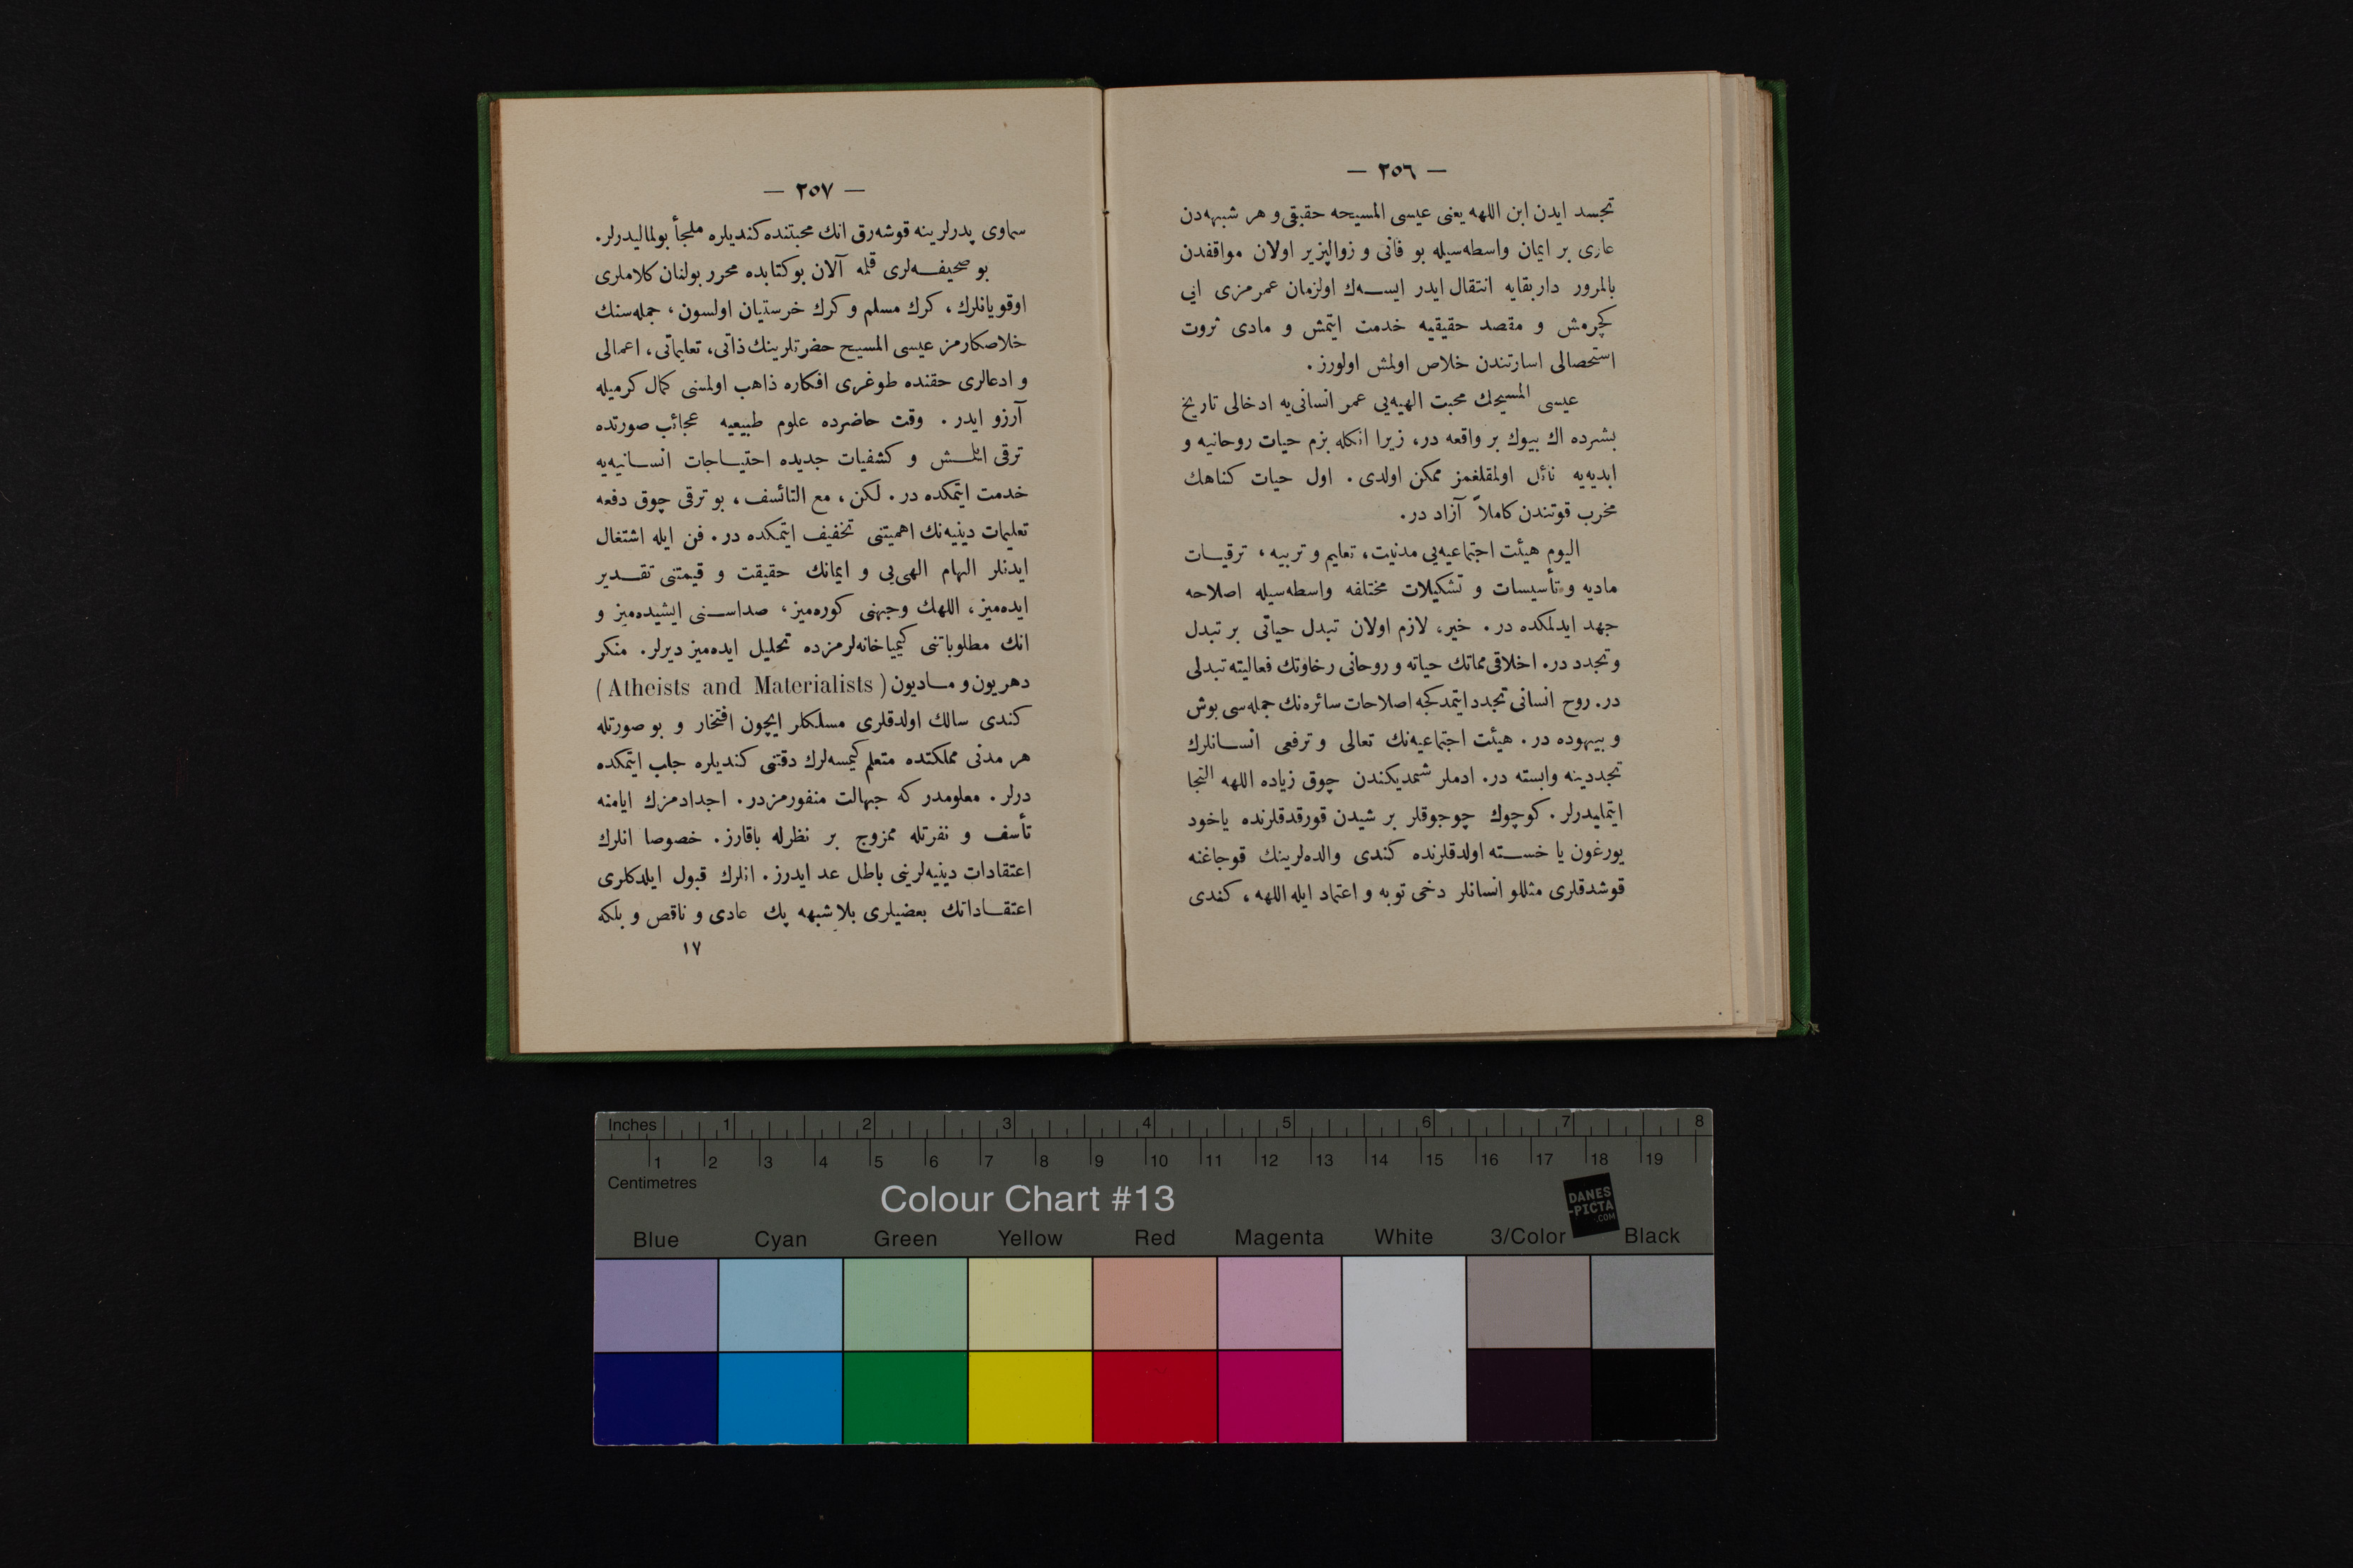 — ٢٥٦ —
تجسد ایدن ابن اللهه یعنی عیسی المسیحه حقیقی و هر شبهه‌دن
عاری بر ایمان واسطه‌سیله بو فانی و زوالپزیر اولان مواقفدن
بالمرور داربقایه انتقال ایدر ایسه‌ك اولزمان عمرمزی ایی
كچرمش و مقصد حقیقیه خدمت ایتمش و مادی ثروت
استحصالی اسارتندن خلاص اولمش اولورز.
عیسی المسیحك محبت الهیه‌یی عمر انسانی‌یه ادخالی تاریخ
بشرده اك بیوك بر واقعه در، زیرا انكله بزم حیات روحانیه و
ابدیه‌یه نائل اولمقلغمز ممكن اولدی. اول حیات كناهك
مخرب قوتندن كاملاً آزاد در.
الیوم هیئت اجتماعیه‌یی مدنیت، تعلیم و تربیه، ترقیات
مادیه و تأسیسات و تشكیلات مختلفه واسطه‌سیله اصلاحه
جهد ایدلمكده در. خیر، لازم اولان تبدل حیاتی بر تبدل
و تجدد در. اخلاقی مماتك حیاته و روحانی رخاوتك فعالیته تبدلی
در. روح انسانی تجدد ایتمدكجه اصلاحات سائره‌نك جمله‌سی بوش
و بیهوده در. هیئت اجتماعیه‌نك تعالی و ترفعی انسانلرك
تجددینه وابسته در. ادملر شمدیكندن چوق زیاده اللهه التجا
ایتملیدرلر. كوچوك چوجوقلر بر شیدن قورقدقلرنده یاخود
یورغون یا خسته اولدقلرنده كندی والده‌لرینك قوجاغنه
قوشدقلری مثللو انسانلر دخی توبه و اعتماد ایله اللهه، كندی
— ٢٥٧ —
سماوی پدرلرینه قوشه‌رق انك محبتنده كندیلره ملجأ بولمالیدرلر.
بو صحیفه‌لری قلمه آلان بو كتابده محرر بولنان كلاملری
اوقویانلرك، كرك مسلم و كرك خرستیان اولسون، جمله‌سنك
خلاصكارمز عیسی المسیح حضرتلرینك ذاتی، تعلیماتی، اعمالی
و ادعالری حقنده طوغری افكاره ذاهب اولمسنی كمال كرمیله
آرزو ایدر. وقت حاضرده علوم طبیعیه عجائب صورتده
ترقی ایتمش و كشفیات جدیده احتیاجات انسانیه‌یه
خدمت ایتمكده در. لكن، مع التائسف، بو ترقی چوق دفعه
تعلیمات دینیه‌نك اهمیتنی تخفیف ایتمكده در. فن ایله اشتغال
ایدنلر الهام الهی‌یی و ایمانك حقیقت و قیمتنی تقدیر
ایده‌میز، اللهك وجهنی كوره‌میز، صداسنی ایشیده‌میز و
انك مطلوباتنی كیمیاخانه‌لرمزده تحلیل ایده‌میز دیرلر. منكر
دهریون و مادیون (Atheists and Materialists)
كندی سالك اولدقلری مسلكلر ایچون افتخار و بو صورتله
هر مدنی مملكتده متعلم كیمسه‌لرك دقتنی كندیلره جلب ایتمكده
درلر. معلومدر كه جهالت منفورمزدر. اجدادمزك ایامنه
تأسف و نفرتله ممزوج بر نظرله باقارز. خصوصا انلرك
اعتقادات دینیه‌لرینی باطل عد ایدرز. انلرك قبول ایلدكلری
اعتقاداتك بعضیلری بلاشبهه پك عادی و ناقص و بلكه
١٧
Inches 1 2 3 4 5 6 7 8
1 2 3 4 5 6 7 8 9 10 11 12 13 14 15 16 17 18 19
Centimetres
Colour Chart #13
DANES
-PICTA
.COM
Blue Cyan Green Yellow Red Magenta White 3/Color Black